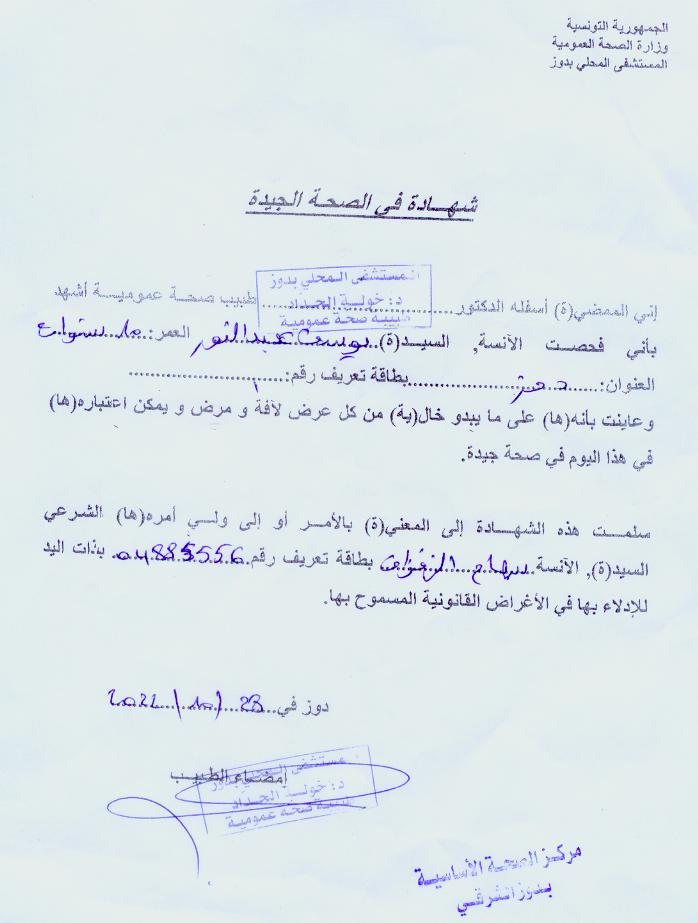 الجمهورية التونسية
وزارة الصحة العمومية
المستشفى المحلي بدوز
شهادة في الصحة الجيدة
المستشفى المحلي بدوز
د: خولة الحداد
طبيبة صحة عمومية
إني الممضي(ة) أسفله الدكتور طبيب صحة عمومية أشهد
بأني فحصت الآنسة, السيد(ة) يوسف عبد النور العمر: سنوات
العنوان: دوز بطاقة تعريف رقم:
وعاينت بأنه(ها) على ما يبدو خال(ية) من كل عرض لآفة و مرض و يمكن اعتباره(ها)
في هذا اليوم في صحة جيدة.
سلمت هذه الشهادة إلى المعني(ة) بالأمر أو إلى ولي أمره(ها) الشرعي
السيد(ة), الآنسة سهام بطاقة تعريف رقم 04885556 بذات اليد
للإدلاء بها في الأغراض القانونية المسموح بها.
دوز في 2022/10/28
إمضاء الطبيب
مستشفى المحلي بدوز
د: خولة الحداد
طبيبة صحة عمومية
مركز الصحة الأساسية
بدوز الشرقي